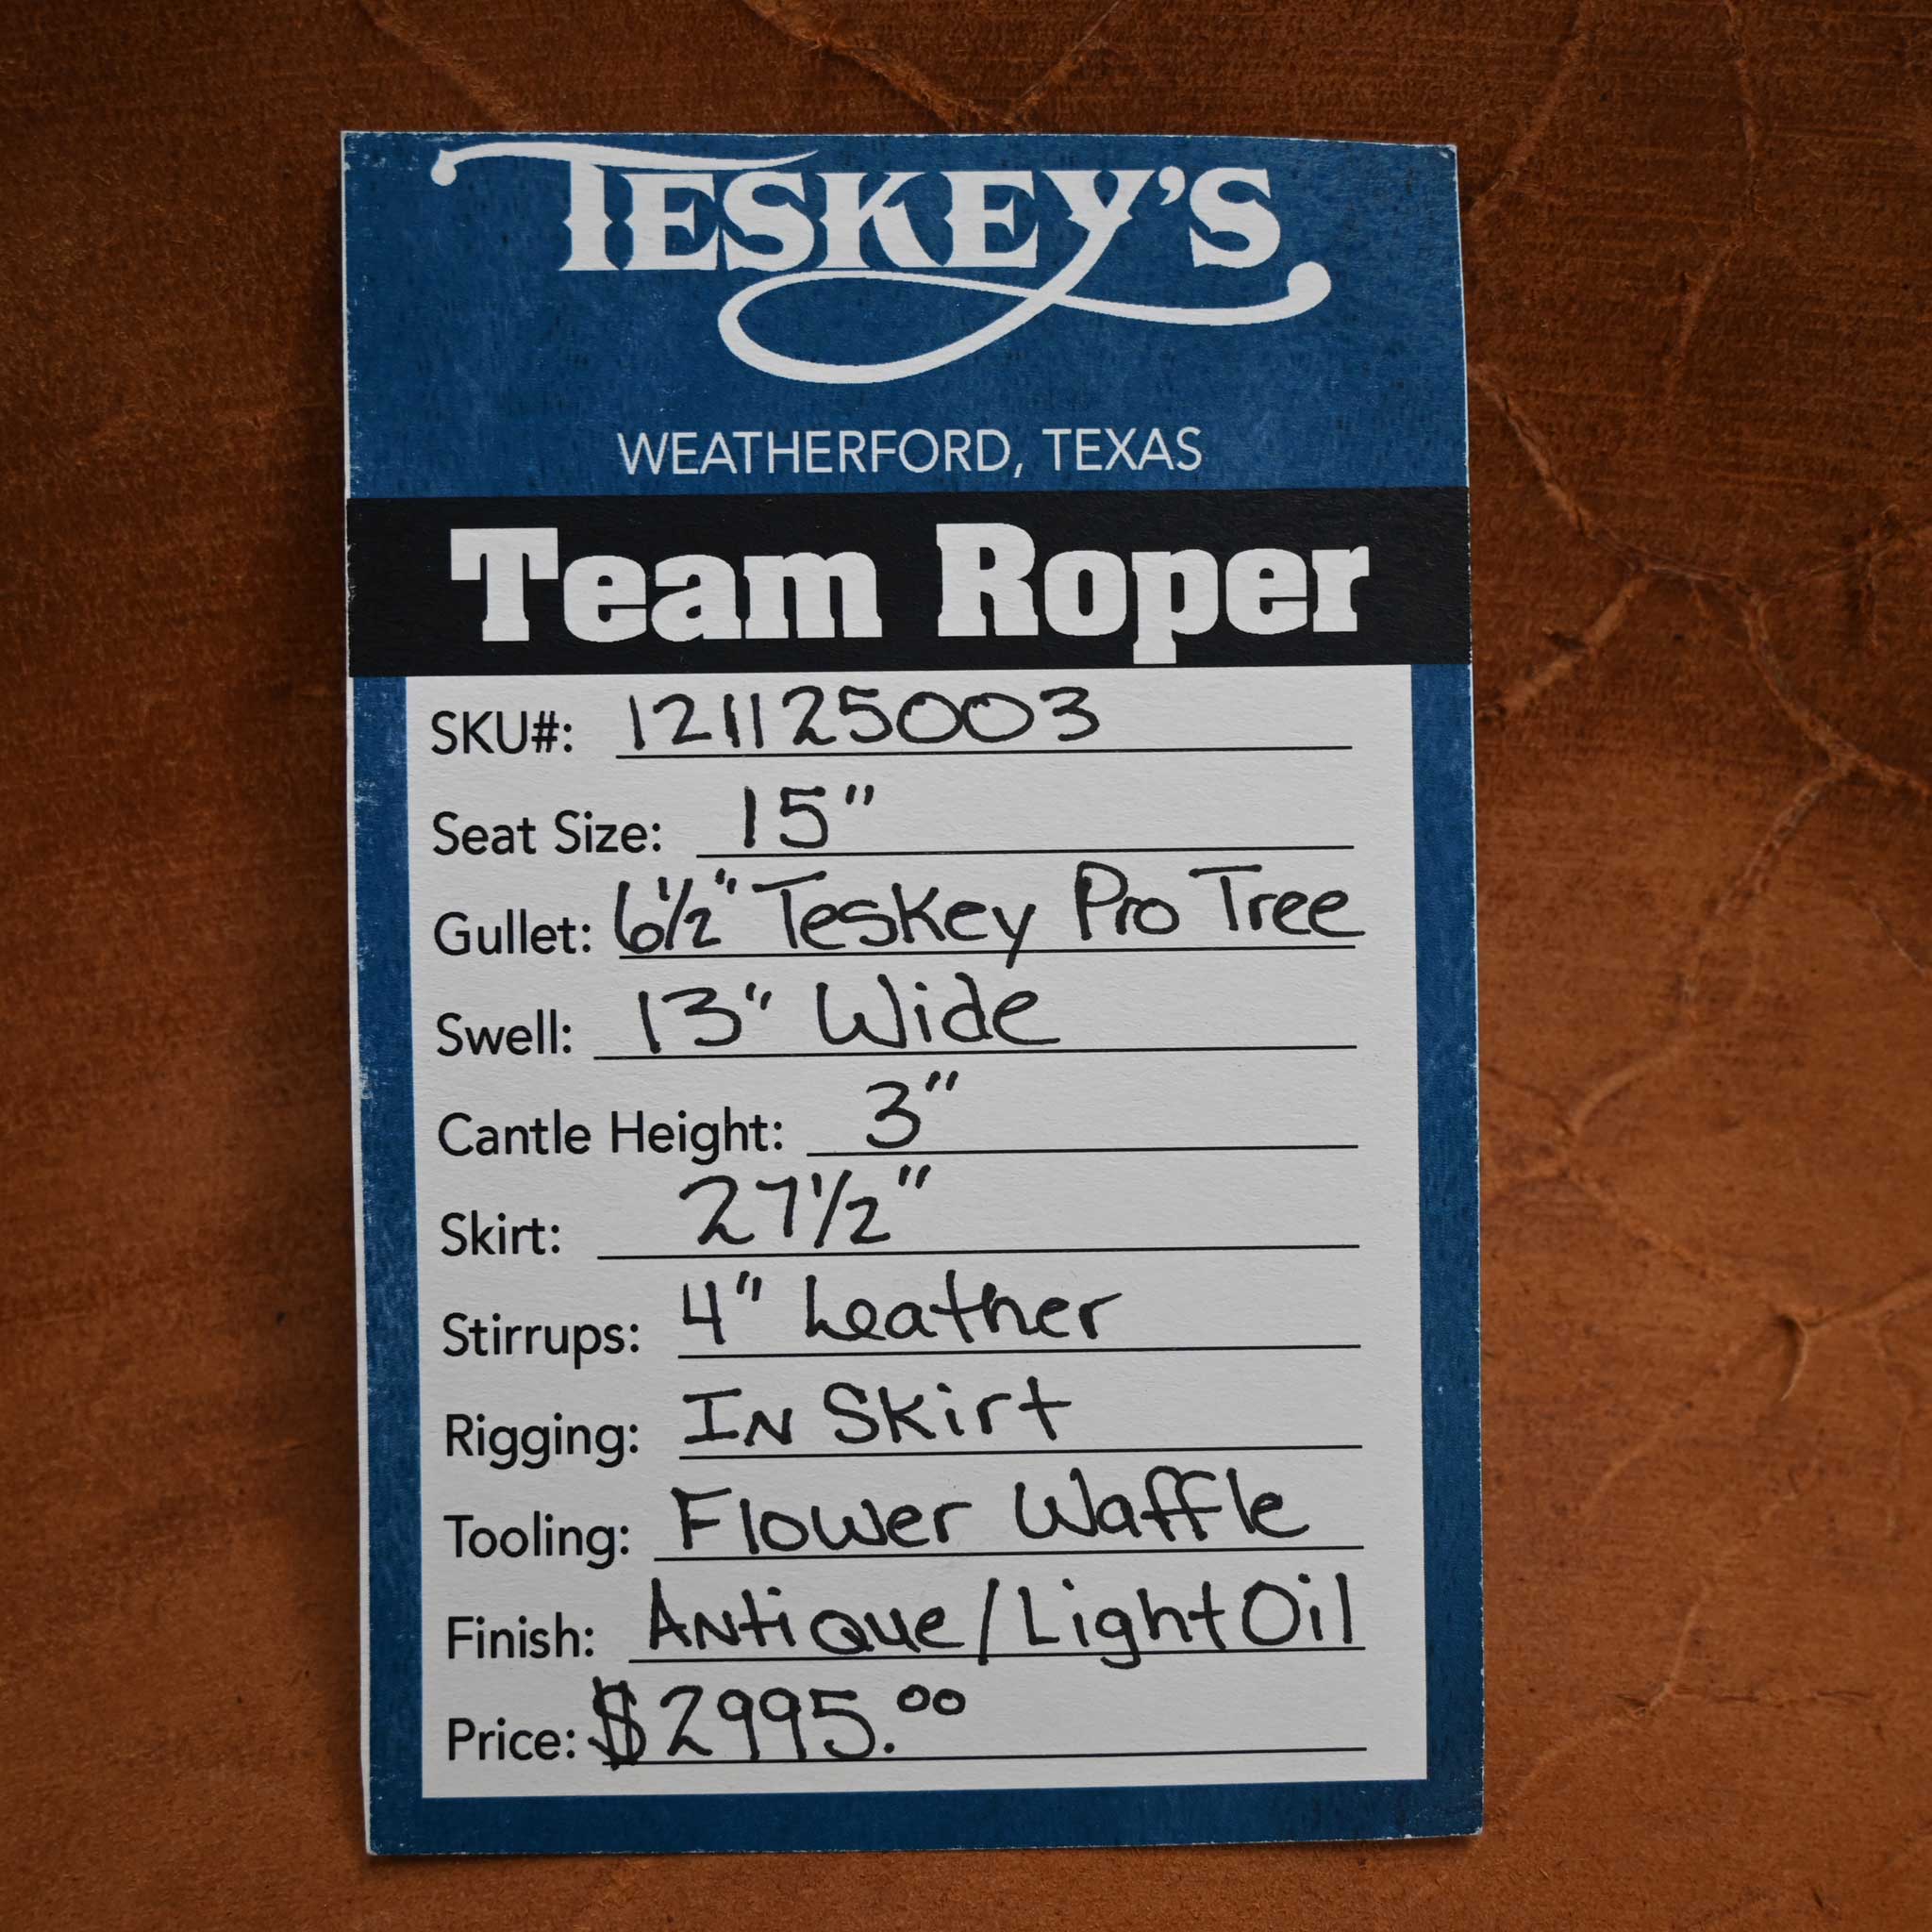 TESKEY'S
WEATHERFORD, TEXAS
Team Roper
SKU#: 121125003
Seat Size: 15"
Gullet: 6½" Teskey Pro Tree
Swell: 13" Wide
Cantle Height: 3"
Skirt: 27½"
Stirrups: 4" Leather
Rigging: In Skirt
Tooling: Flower Waffle
Finish: Antique/Light Oil
Price: $2995.00